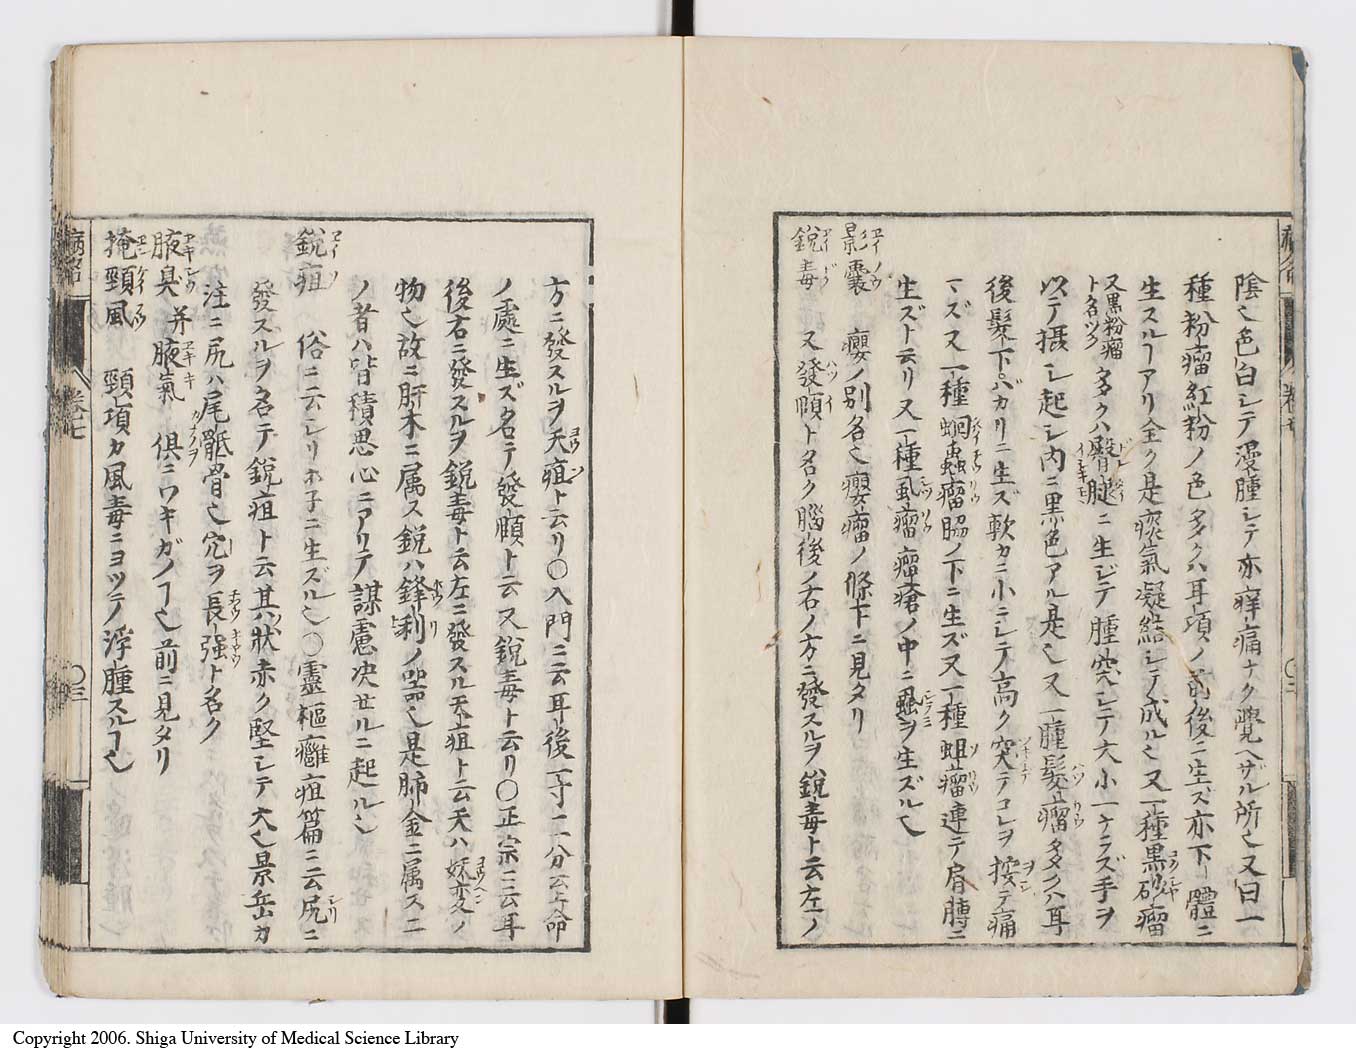 陰也色白シテ漫腫シテ亦痒痛ナク覺ヘザル所也又曰一
種粉瘤紅粉ノ色多クハ耳項ノ前後ニ生ズ亦下體ニ
生スルヿアリ全ク是痰氣凝結シテ成ル也又一種黒砂瘤
又黒粉瘤ト名ツク多クハ臀腿ニ生ジテ腫突シテ大小一ナラズ手ヲ
以テ摂シ起シ内ニ黒色アル是也又一腫髮瘤多クハ耳
後髮下バカリニ生ズ軟カニ小ニシテ高ク突テコレヲ按テ痛
マズ又一種蛔蟲瘤脇ノ下ニ生ズ又一種蛆瘤連テ肩膊ニ
生ズト云リ又一種虱瘤瘤瘡ノ中ニ虱ヲ生ズル也
景囊 癭ノ別名也癭瘤ノ條下ニ見タリ
銳毒 又發頤ト名ク腦後ノ右ノ方ニ發スルヲ銳毒ト云左ノ
方ニ發スルヲ夭疽ト云リ〇入門ニ云耳後一寸二分
ノ處ニ生ズ名テ發頤ト云又銳毒ト云リ〇正宗ニ云耳
後右ニ發スルヲ銳毒ト云左ニ發スル夭疽ト云夭ハ妖変ノ
物也故ニ肝木ニ属ス銳ハ鋒利ノ器也是肺金ニ属ス二
ノ者ハ皆積思心ニアリテ謀慮决せルニ起ル也
銳疽 俗ニ云シリホ子ニ生ズル也〇靈樞癰疽篇ニ云尻ニ
發スルヲ名テ銳疽ト云其状赤ク堅シテ大也景岳カ
注ニ尻ハ尾骶骨也穴ヲ長強ト名ク
腋臭 并腋氣 倶ニワキガノヿ也前ニ見タリ
掩頸風 頸項カ風毒ニヨツテ浮腫スルヿ也
病名
卷七
〇三
Copyright 2006. Shiga University of Medical Science Library